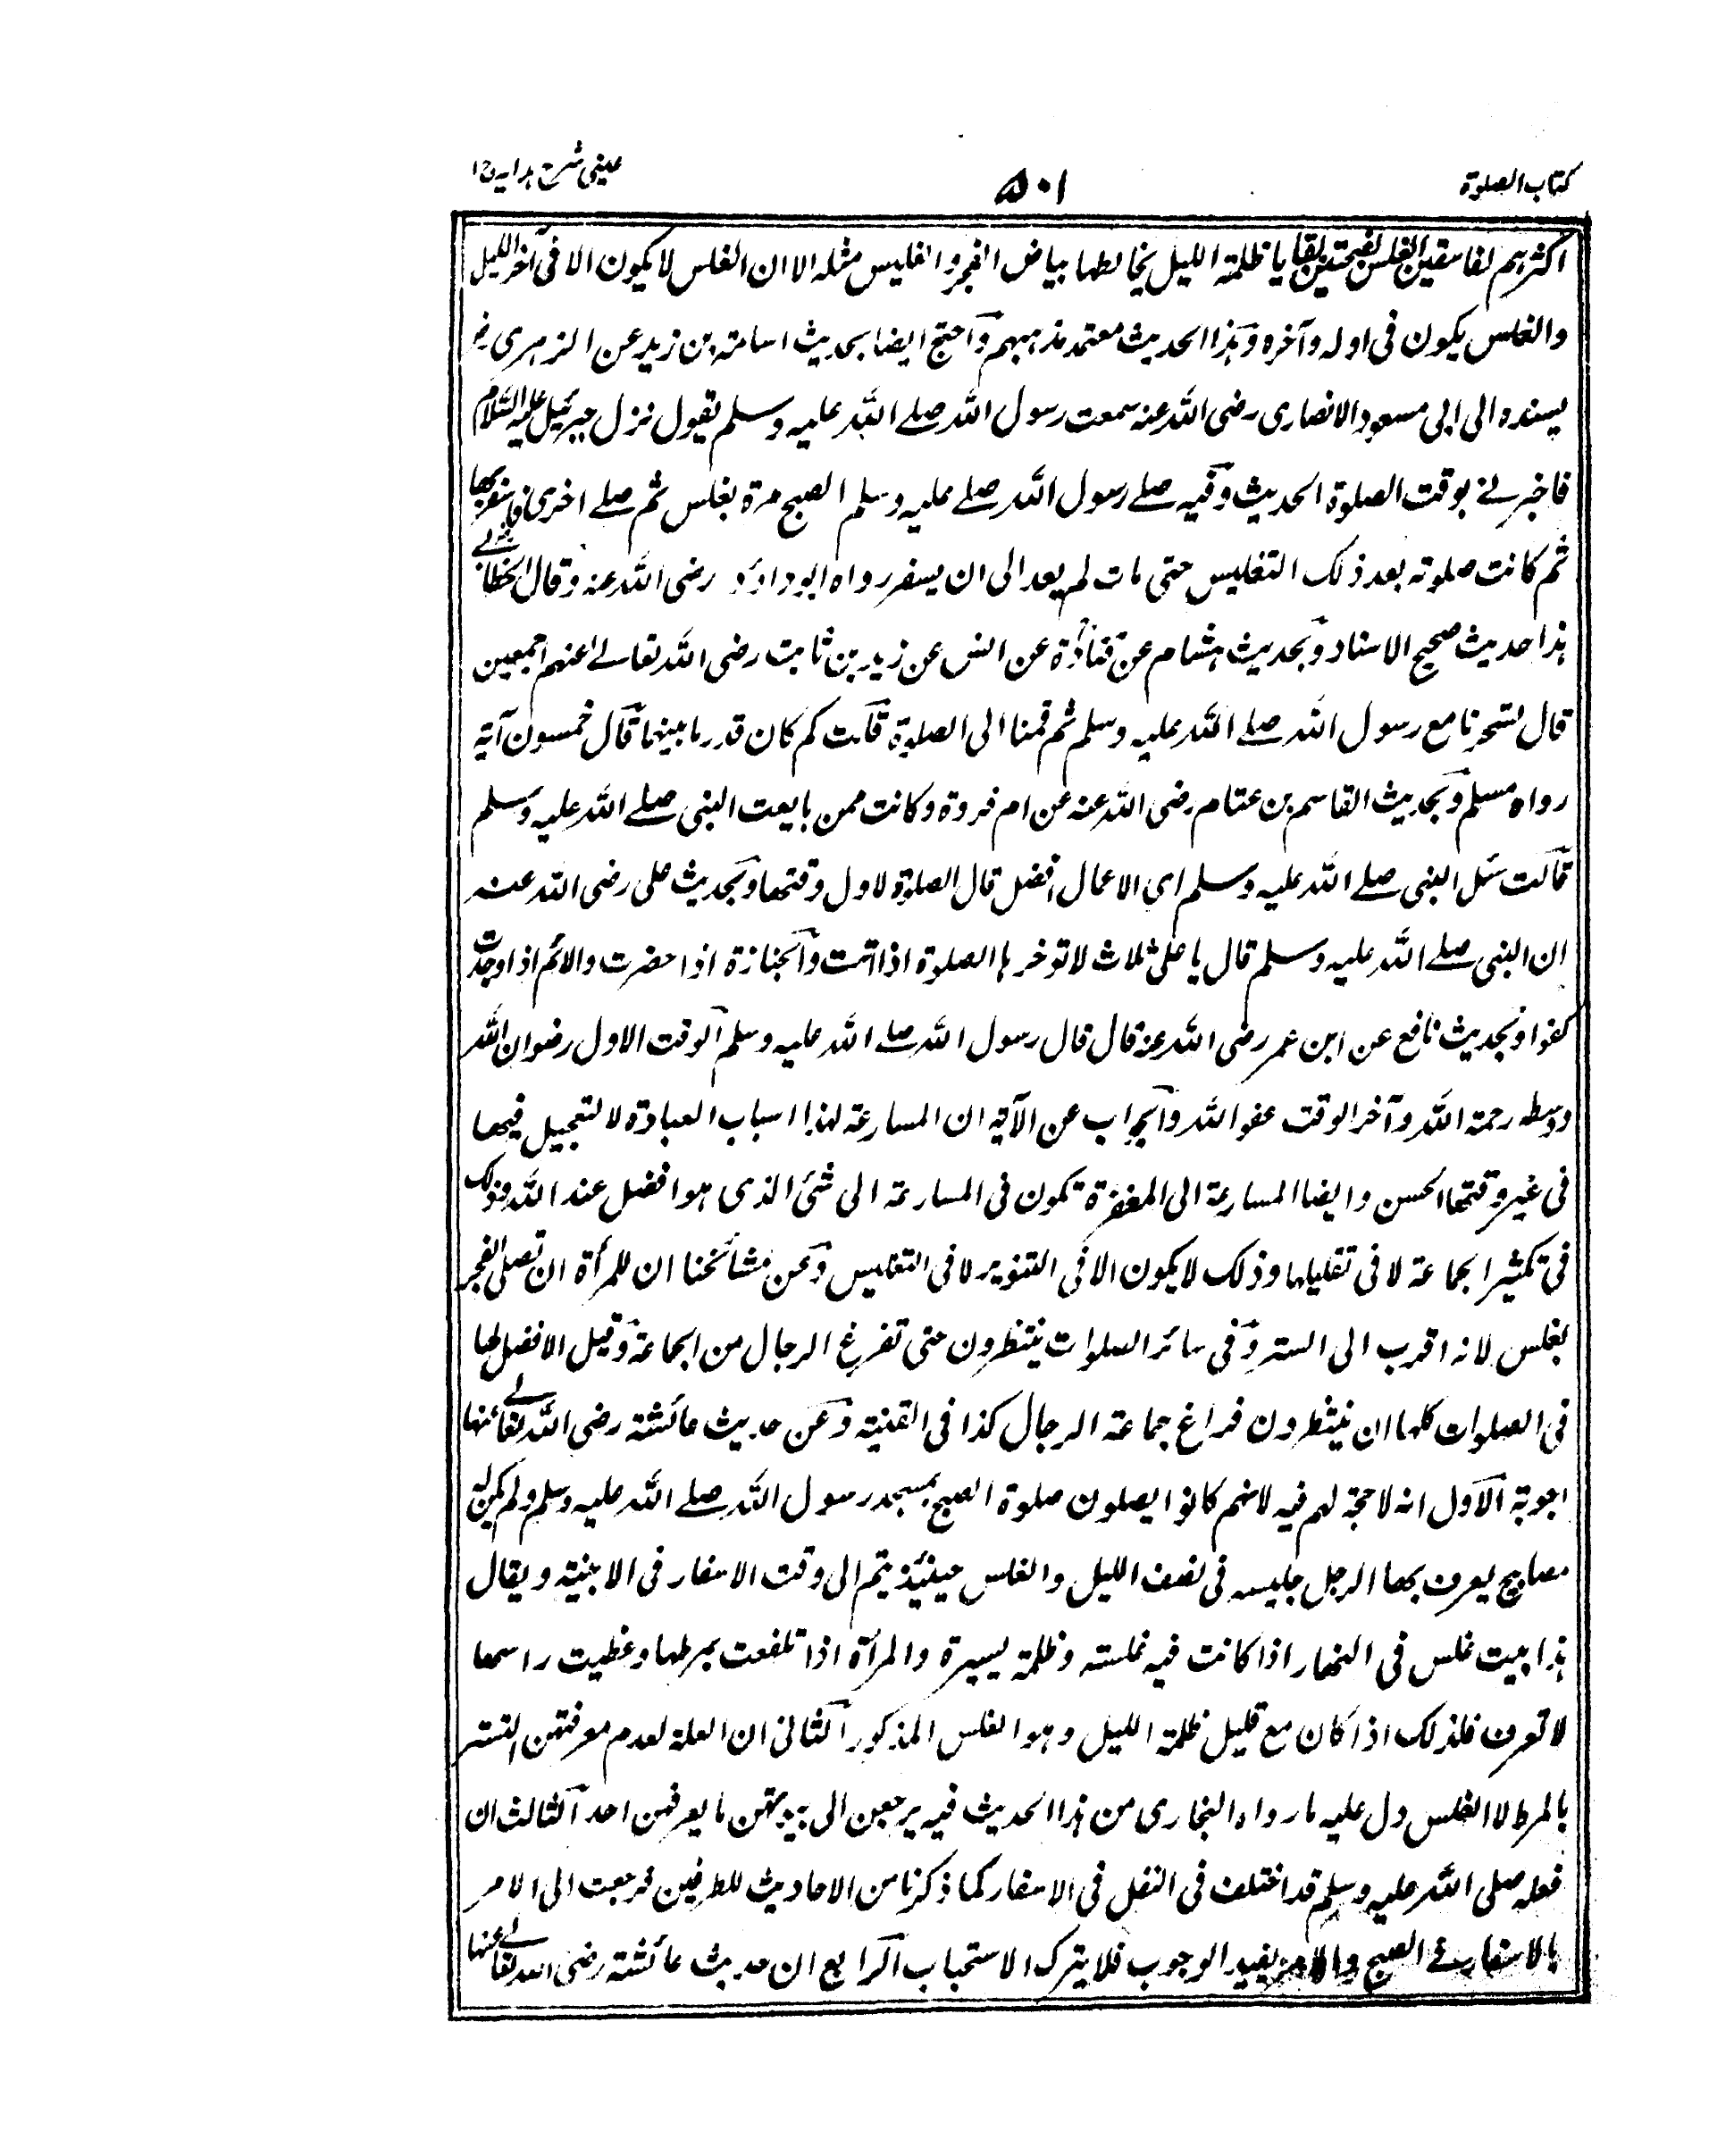 كتاب الصلوة
٥٠١
عينى شرح هدايه ج ١
اكثرهم لفاسقين الغلس بفتحتين بقايا ظلمة الليل يخالطها بياض الفجر والغليس مثله الا ان الغلس لا يكون الا فى آخر الليل
والغلس يكون فى اوله وآخره وهذا الحديث معتمد مذهبهم واحتج ايضا بحديث اسامة بن زيد عن الزهرى
يسنده الى ابى مسعود الانصارى رضى الله عنه سمعت رسول الله صلے الله عليه وسلم يقول نزل جبرئيل عليه السلام
فاخبرنے بوقت الصلوة الحديث وفيه صلے رسول الله صلے عليه وسلم الصبح مرة بغلس ثم صلے اخرى فاسفر بها
ثم كانت صلوته بعد ذلك التغليس حتى مات لم يعد الى ان يسفر رواه ابو داؤد رضى الله عنه وقال الخطابے
هذا حديث صحيح الاسناد وبحديث هشام عن قتادة عن انس عن زيد بن ثابت رضى الله تعالے عنهم اجمعين
قال تسحرنا مع رسول الله صلے الله عليه وسلم ثم قمنا الى الصلوة قلت كم كان قدر ما بينهما قال خمسون آية
رواه مسلم وبحديث القاسم بن غنام رضى الله عنه عن ام فروة وكانت ممن بايعت النبى صلے الله عليه وسلم
قالت سئل النبى صلے الله عليه وسلم اى الاعمال افضل قال الصلوة لاول وقتها وبحديث على رضى الله عنه
ان النبى صلے الله عليه وسلم قال يا على ثلاث لا توخرها الصلوة اذا اتت والجنازة اذا حضرت والائم اذا وجدت
كفوا وبحديث نافع عن ابن عمر رضى الله عنه قال قال رسول الله صلے الله عليه وسلم الوقت الاول رضوان الله
ووسطه رحمة الله وآخر الوقت عفو الله والجواب عن الآية ان المسارعة لهذا اسباب العبادة لا لتعجيل فيها
فى غير وقتها الحسن وايضا المسارعة الى المغفرة تكون فى المسارعة الى شئ الذى هو افضل عند الله وذلك
فى تكثير الجماعة لا فى تقليلها وذلك لا يكون الا فى التنوير لا فى التغليس وعن مشائخنا ان للمرأة ان تصلى الفجر
بغلس لانه اقرب الى الستر وفى سائر الصلوات ينتظرون حتى تفرغ الرجال من الجماعة وقيل الافضل لها
فى الصلوات كلها ان ينتظرون فراغ جماعة الرجال كذا فى القنية وعن حديث عائشة رضى الله تعالے عنها
اجوبة الاول انه لا حجة لهم فيه لانهم كانوا يصلون صلوة الصبح بمسجد رسول الله صلے الله عليه وسلم ولم يكن له
مصابيح يعرف بها الرجل جليسه فى نصف الليل والغلس حينئذ يتم الى وقت الاسفار فى الابنية ويقال
هذا بيت غلس فى النهار اذا كانت فيه غلسته وظلمة يسيرة والمرأة اذا تلفعت بمرطها وغطيت راسها
لا تعرف فلذلك اذا كان مع قليل ظلمة الليل وهو الغلس المذكور الثانى ان العلة لعدم معرفتهن التستر
بالمرط لا الغلس دل عليه ما رواه البخارى من هذا الحديث فيه يرجعن الى بيوتهن ما يعرفهن احد الثالث ان
فعله صلى الله عليه وسلم قد اختلف فى النفل فى الاسفار كما ذكرنا من الاحاديث للطرفين فرجعت الى الامر
بالاسفار فے الصبح والامر يفيد الوجوب فلا يترك الاستحباب الرابع ان حديث عائشة رضى الله تعالے عنها